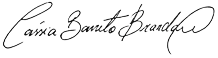 Caíssa Barreto Brandão